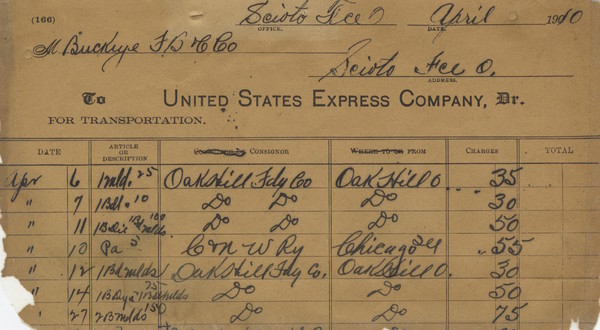 (166) Scioto Fce O April 1910
OFFICE. DATE.
M Buckeye F B & C Co
Scioto Fce O.
ADDRESS.
To UNITED STATES EXPRESS COMPANY, Dr.
FOR TRANSPORTATION.
DATE ARTICLE OR DESCRIPTION CONSIGNOR WHERE TO OR FROM CHARGES TOTAL
Apr 6 1 Bdl. 25 Oak Hill Fdy Co Oak Hill O. 35
" 7 1 Bdl. 10 Do Do Do 30
" 11 Do Do Do 50
" 10 Pa C & N W Ry Chicago 55
" 12 Oak Hill Fdy Co. Oak Hill O. 30
" 14 Do Do 50
" 27 2 Bdmlds 150 Do Do 75